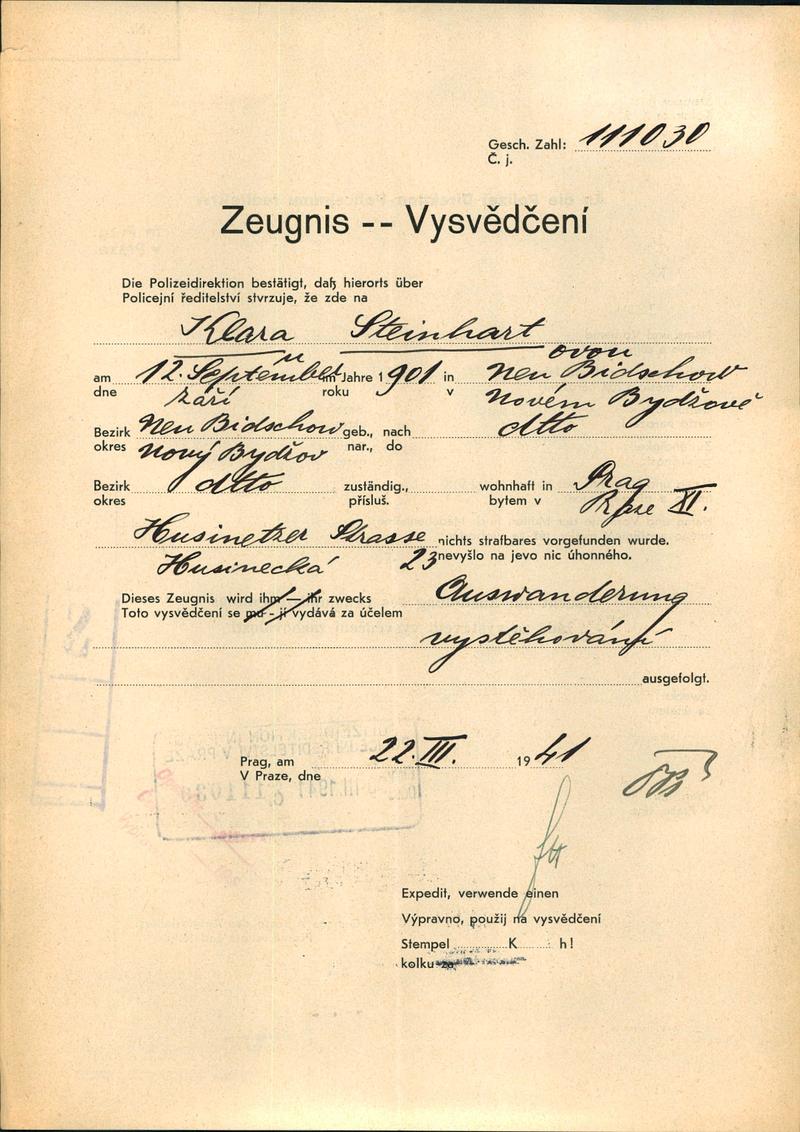 Gesch. Zahl: 111030
Č. j.
Zeugnis -- Vysvědčení
Die Polizeidirektion bestätigt, daß hierorts über
Policejní ředitelství stvrzuje, že zde na
Klara Steinhart
ovou
am 12. September im Jahre 1901 in Neu Bidschow
dne září roku v Novém Bydžově
Bezirk Neu Bidschow geb., nach dtto
okres Nový Bydžov nar., do
Bezirk dtto zuständig., wohnhaft in Prag
okres přísluš. bytem v Praze XI.
Husinetzer Strasse nichts strafbares vorgefunden wurde.
Husinecká 23 nevyšlo na jevo nic úhonného.
Dieses Zeugnis wird ihm — ihr zwecks Auswanderung
Toto vysvědčení se mu - jí vydává za účelem
vystěhování
ausgefolgt.
Prag, am 22. III. 1941
V Praze, dne
Expedit, verwende einen
Výpravno, použij na vysvědčení
Stempel K h!
kolku za